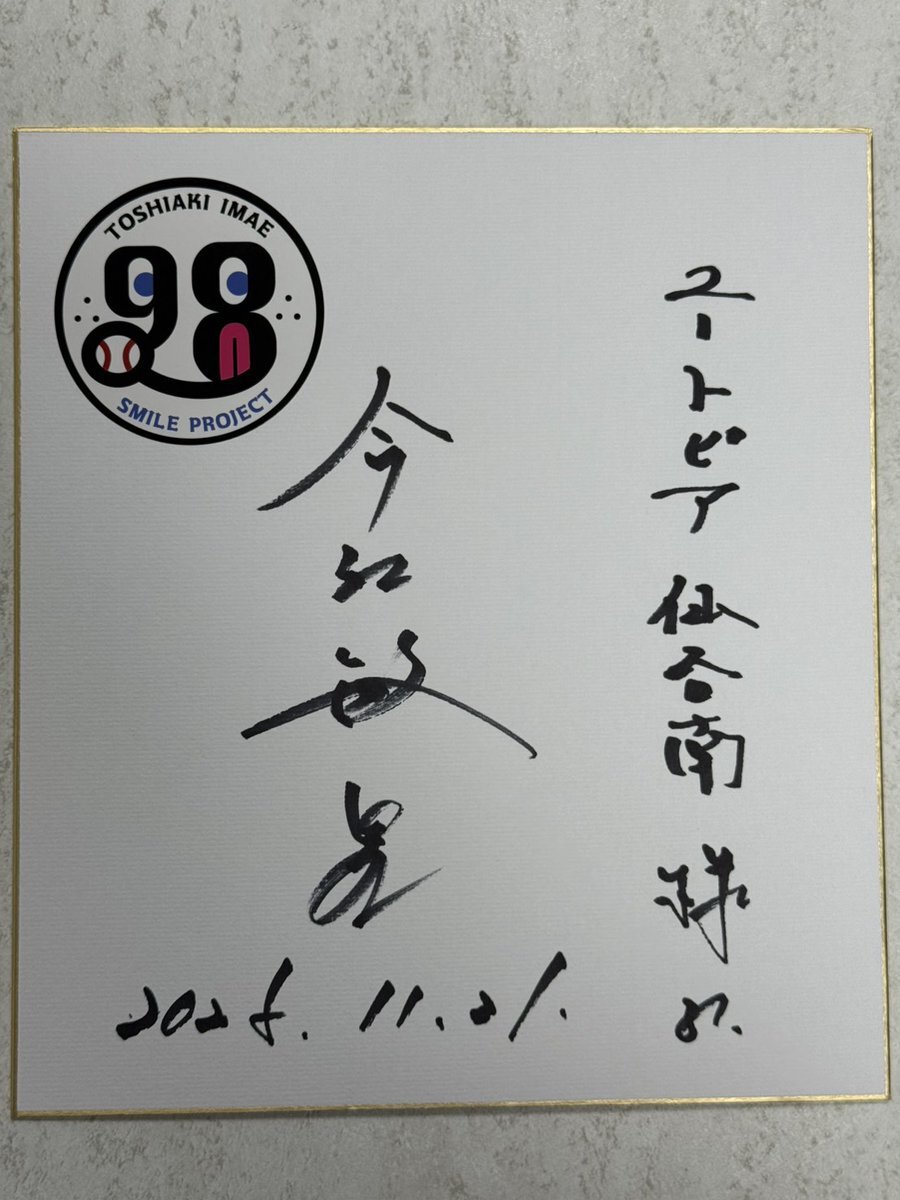 TOSHIAKI IMAE
98
SMILE PROJECT
ユートピア 仙台南 様
今江敏晃
2025. 11. 21.